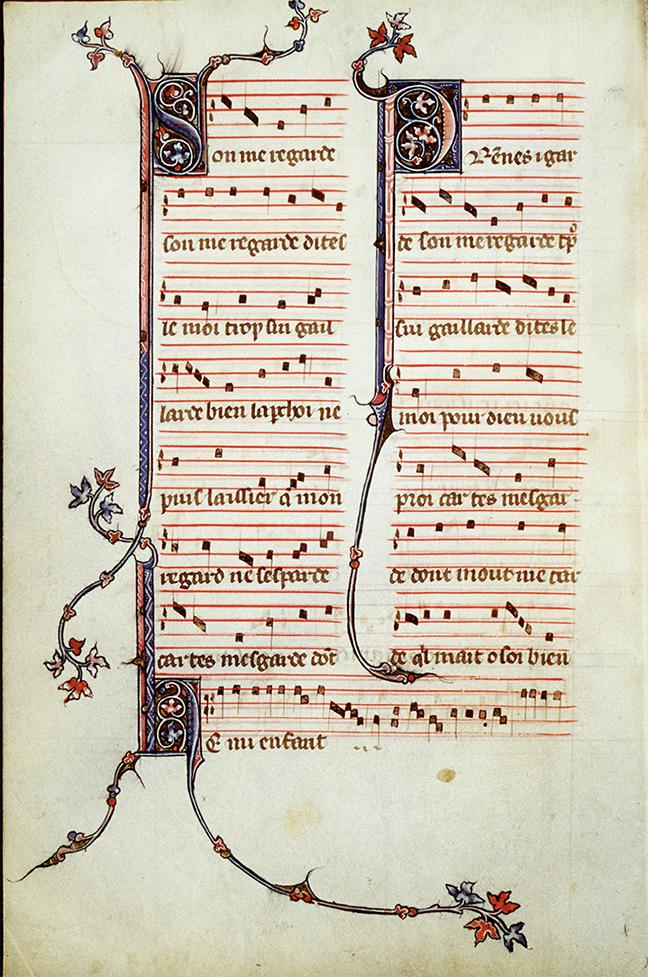 Son me regarde
son me regarde dites
le moi trop sui gail
larde bien lap̱choi ne
puis laissier q̃ mon
regard ne sesparde
car tes mesgarde dōt
Pr̃nes i gar
de son me regarde tᵒp
sui gaillarde dites le
moi pour dieu uous
proi car tes mesgar
de dont mout me tar
de ql mait o soi bien
He mi enfant